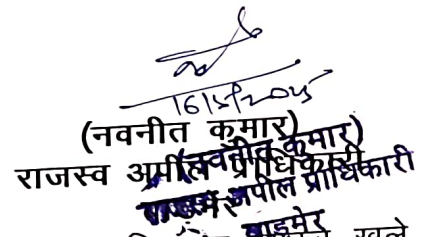 16/5/2025
(नवनीत कुमार)
राजस्व अपील प्राधिकारी
(नवनीत कुमार)
राजस्व अपील प्राधिकारी
बाड़मेर
बाडमेर
खुले